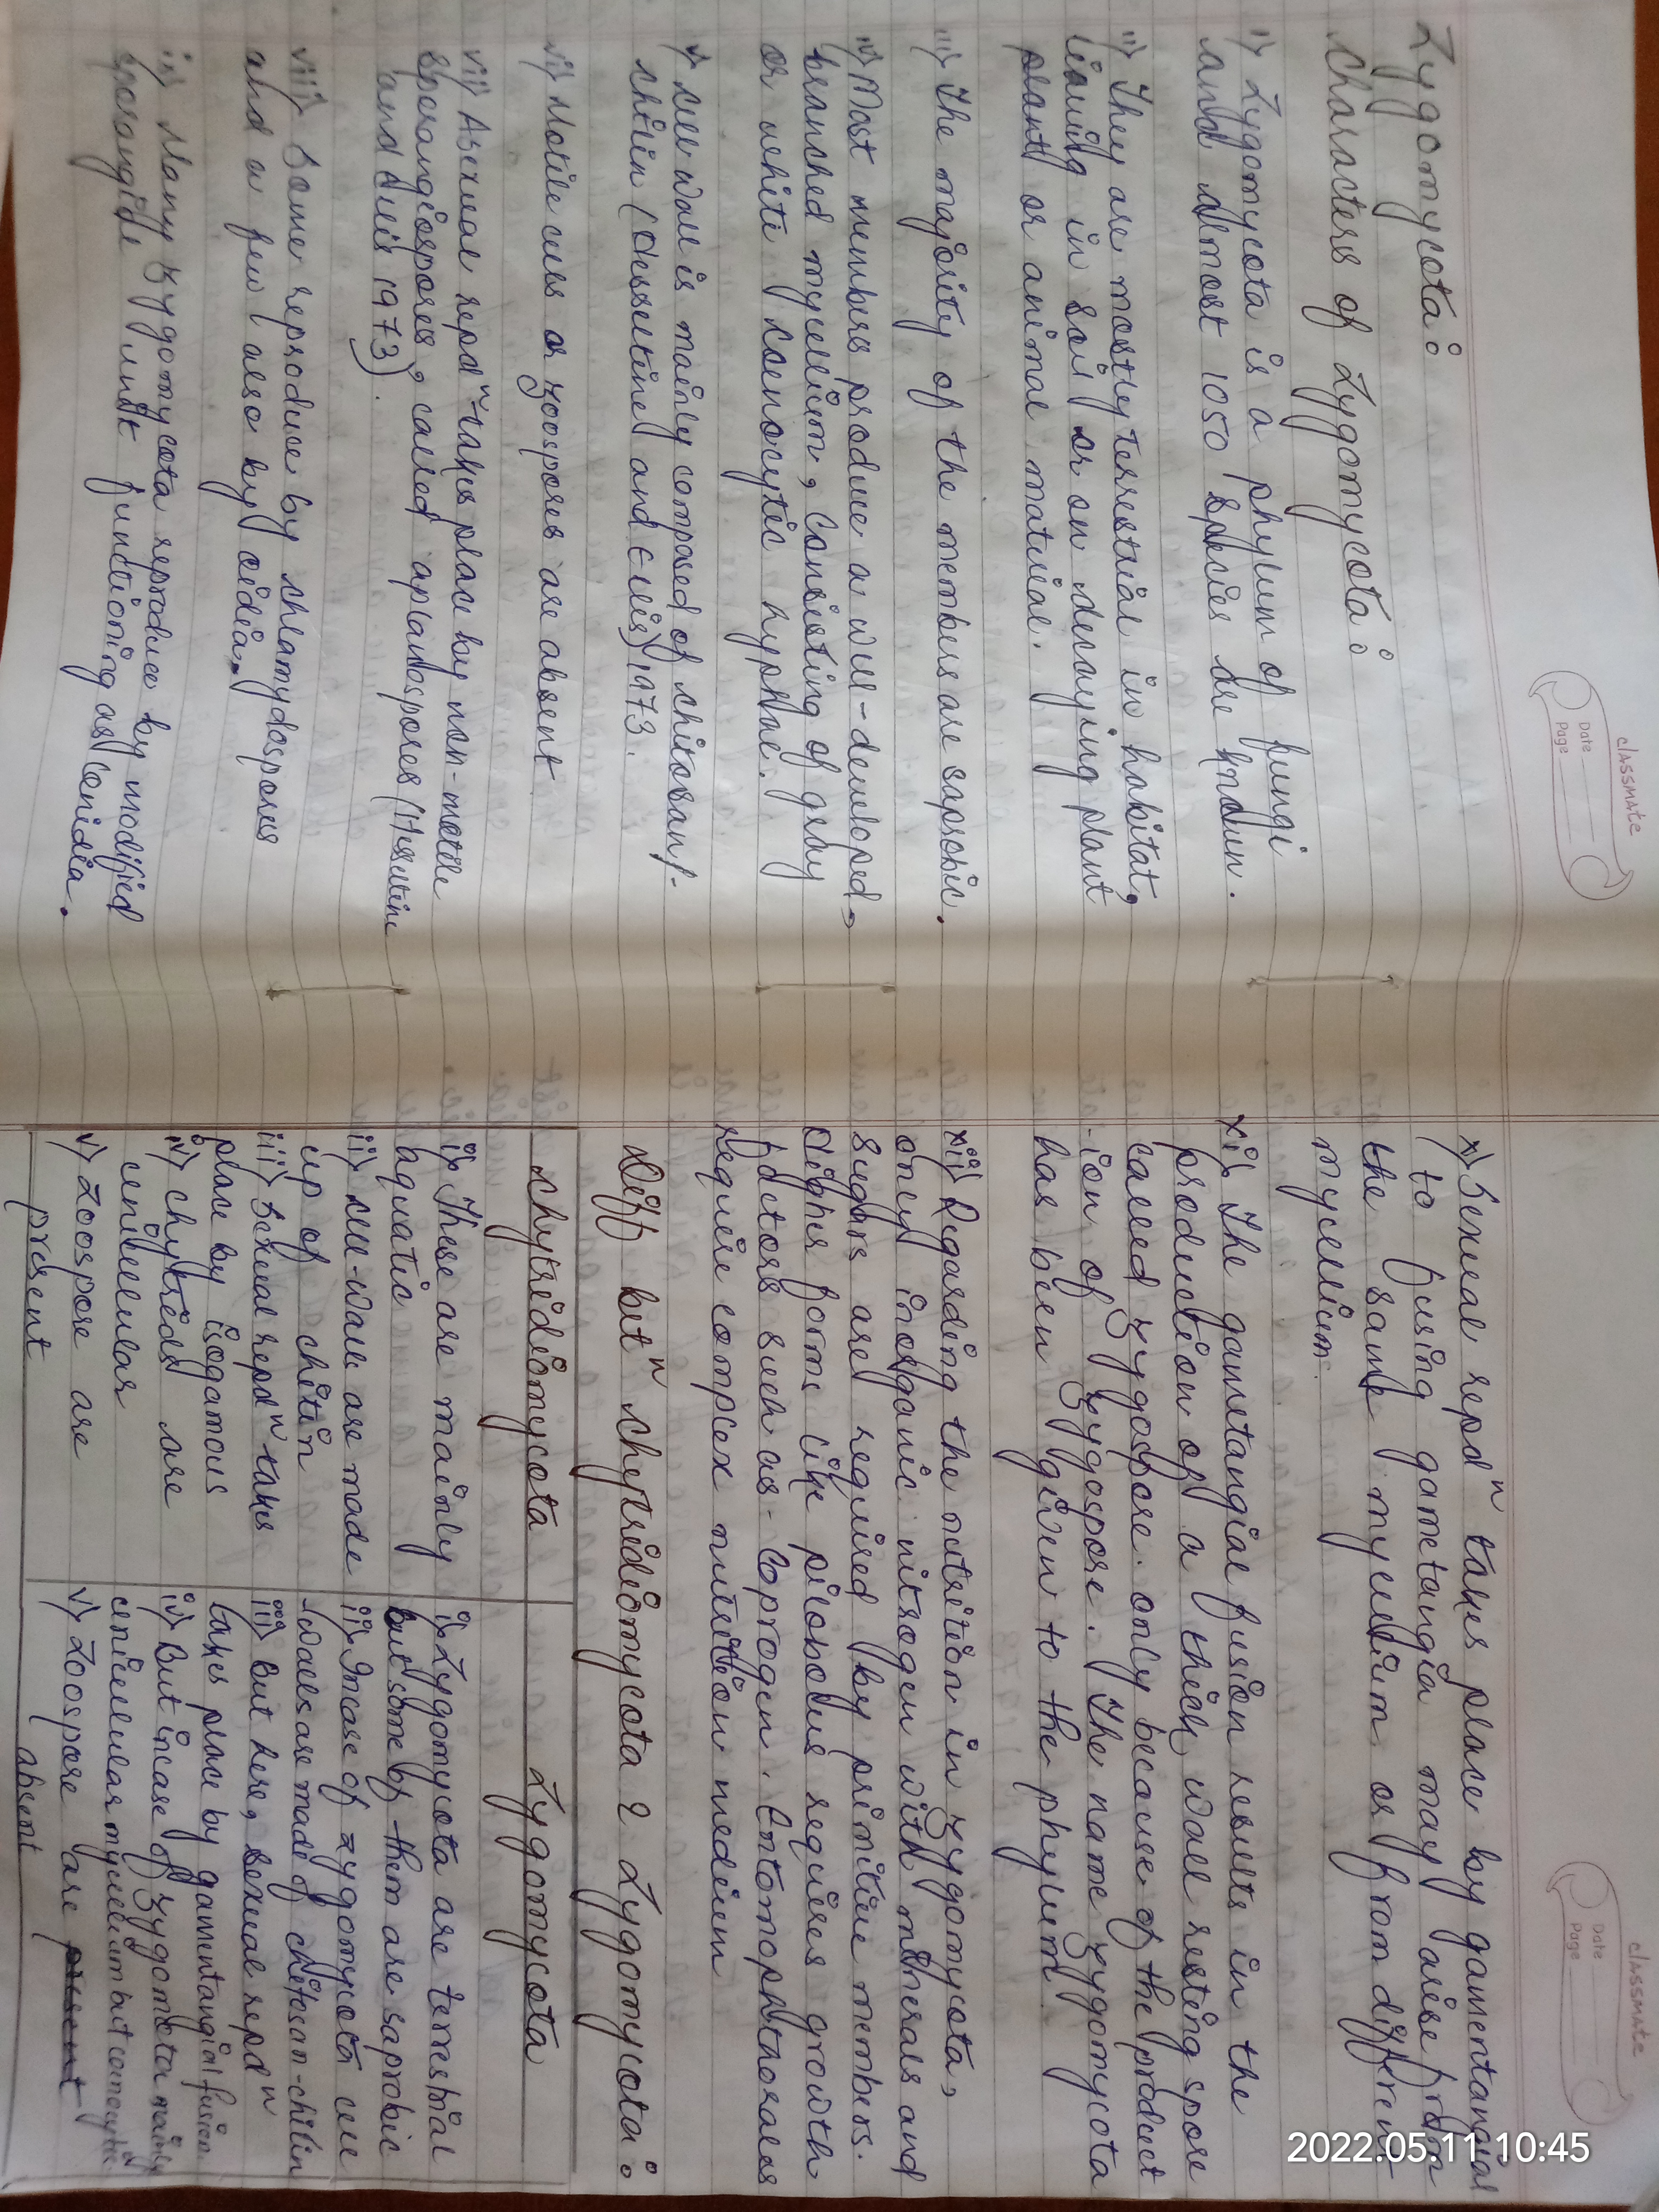 classmate
Date
Page
Zygomycota :
Characters of Zygomycota :
i) Zygomycota is a phylum of fungi
and almost 1050 species are known.
ii) They are mostly terrestrial in habitat,
leaving in soil or on decaying plant
plant or animal material.
iii) The majority of the members are saprobic.
iv) Most members produce a well-developed,
branched mycellium, consisting of gray
or white coenocytic hyphae.
v) Cell wall is mainly composed of chitosan/-
chitin (Hesseltine and Ellis) 1973.
vi) Motile cells or zoospores are absent
vii) Asexual repdn takes place by non-motile
sporangiospores, called aplanospores (Hesseltine
and Ellis 1973).
viii) Some reproduce by chlamydospores
and a few also by oidia.
ix) Many zygomycota reproduce by modified
sporangide unit functioning as conidia.
classmate
Date
Page
x) Sexual repdn takes place by gamentangial
to fusing gametangia may arise from
the same mycellium or from diffrent
mycellium.
xi) The gametangial fusion results in the
production of a thick wall resting spore
called zygospore. only because of the product
-ion of zygospore. The name zygomycota
has been given to the phylum.
xii) Regarding the nutrition in zygomycota,
only inorganic nitrogen with minerals and
sugars are required by primitive members.
Higher forms like pilobolus requires growth
factors such as - coprogen. Entomophthorales
require complex nutrition medium
Diff betn chytridiomycota & Zygomycota :
Chytridiomycota Zygomycota
i) These are mainly
aquatic
ii) Cell-wall are made
up of chitin
iii) Sexual repdn takes
place by isogamous
iv) Chytrids are
unicellular
v) Zoospore are
present
i) Zygomycota are terrestrial
but some of them are saprobic
ii) Incase of zygomycota cell
-walls are made of chitosan-chitin
iii) But here, sexual repdn
takes place by gamentangial fusion
iv) But incase of zygomycota mainly
unicellular mycelium but coenocytic
v) Zoospore are
absent
2022.05.11 10:45